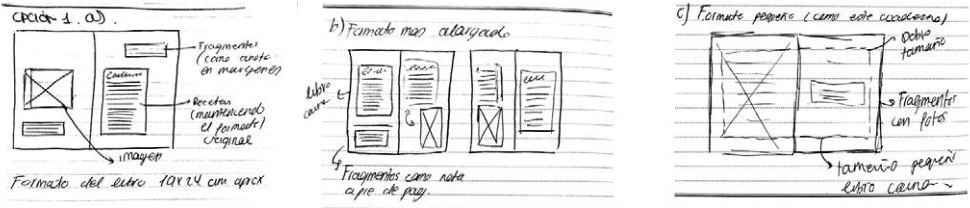 OPCIÓN 1. a).
Fragmentos
(como anota
en margenes)
Recetas
(manteniendo
el formato)
original
imagen
Formato del libro 19x24 cm aprox
b) Formato mas alargado
libro
Fragmentos como nota
a pie de pag.
c) Formato pequeño (como este cuaderno)
Doble
tamaño
Fragmentos
con fotos
tamaño pequeño
libro